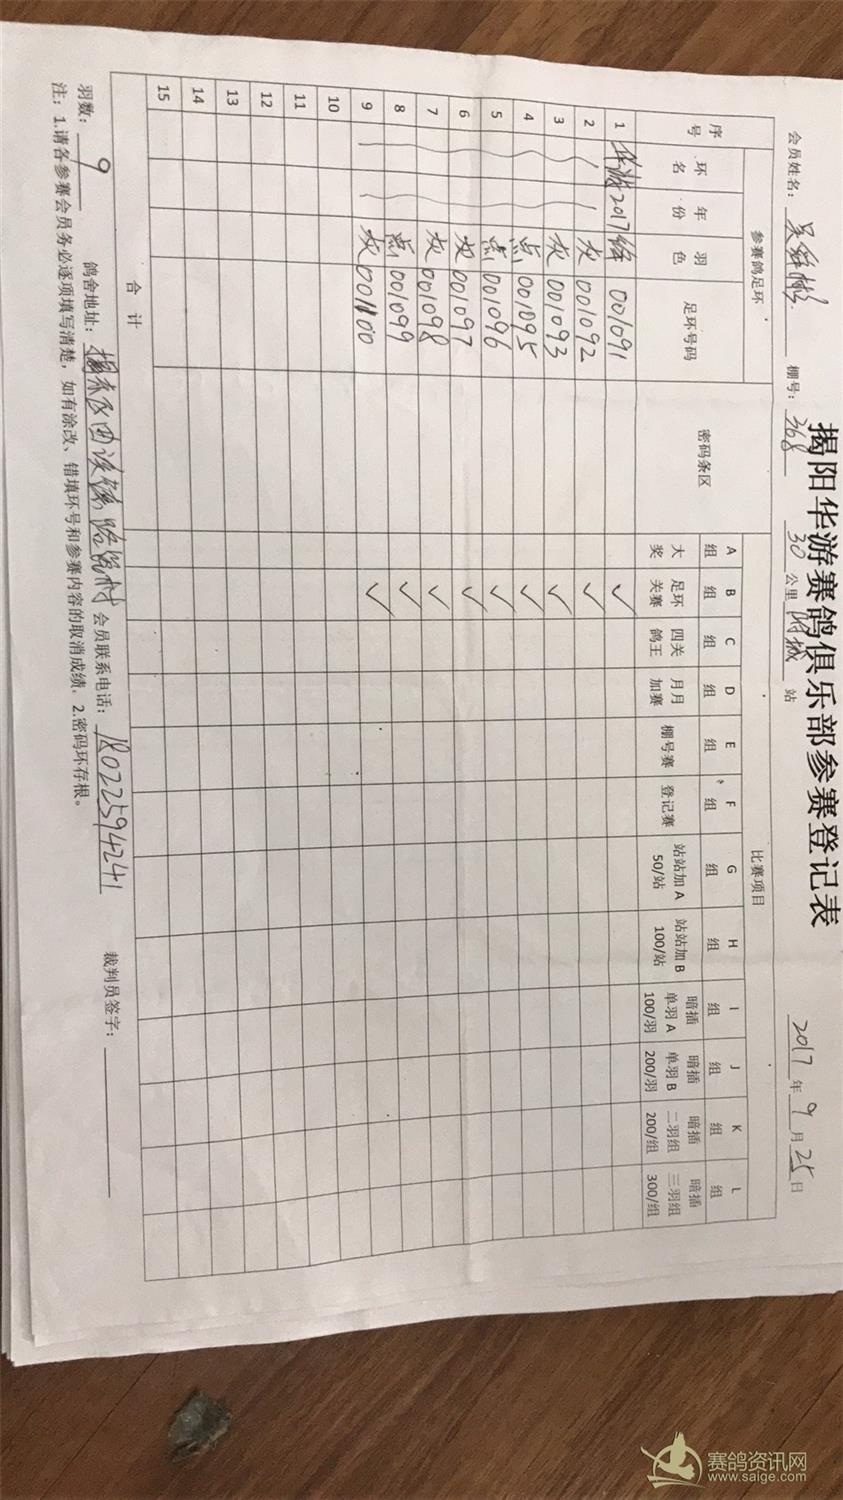 揭阳华游赛鸽俱乐部参赛登记表
会员姓名： 棚号：368 30公里 站 2017年9月25日
序号 参赛鸽足环 密码条区 比赛项目
环名 年份 羽色 足环号码
A组 B组 C组 D组 E组 F组 G组 H组 I组 J组 K组 L组
大奖 足环关赛 四关鸽王 月月加赛 棚号赛 登记赛 站站加A 50/站 站站加B 100/站 暗插单羽A 100/羽 暗插单羽B 200/羽 暗插二羽组 200/组 暗插三羽组 300/组
1 华游 2017 001091 ✓
2 灰 001092 ✓
3 灰 001093 ✓
4 点 001095 ✓
5 点 001096 ✓
6 灰 001097 ✓
7 灰 001098 ✓
8 点 001099 ✓
9 灰 001100 ✓
10
11
12
13
14
15
合计
羽数：9 鸽舍地址： 会员联系电话：18022594241 裁判员签字：
注：1.请各参赛会员务必逐项填写清楚，如有涂改、错填环号和参赛内容的取消成绩．2.密码环存根。
赛鸽资讯网
www.saige.com